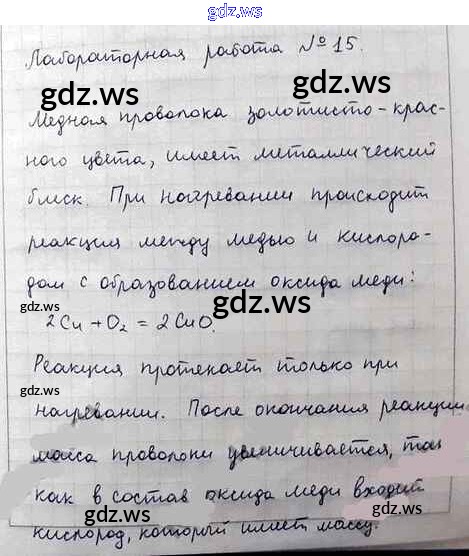 gdz.ws
Лабораторная работа № 15.
gdz.ws gdz.ws
Медная проволока золотисто-крас-
ного цвета, имеет металлический
gdz.ws gdz.ws
блеск. При нагревании происходит
реакция между медью и кислоро-
дом с образованием оксида меди:
gdz.ws gdz.ws
2Cu + O₂ = 2CuO.
Реакция протекает только при
gdz.ws gdz.ws
нагревании. После окончания реакции
масса проволоки увеличивается, так
как в состав оксида меди входит
gdz.ws gdz.ws
кислород, который имеет массу.
gdz.ws